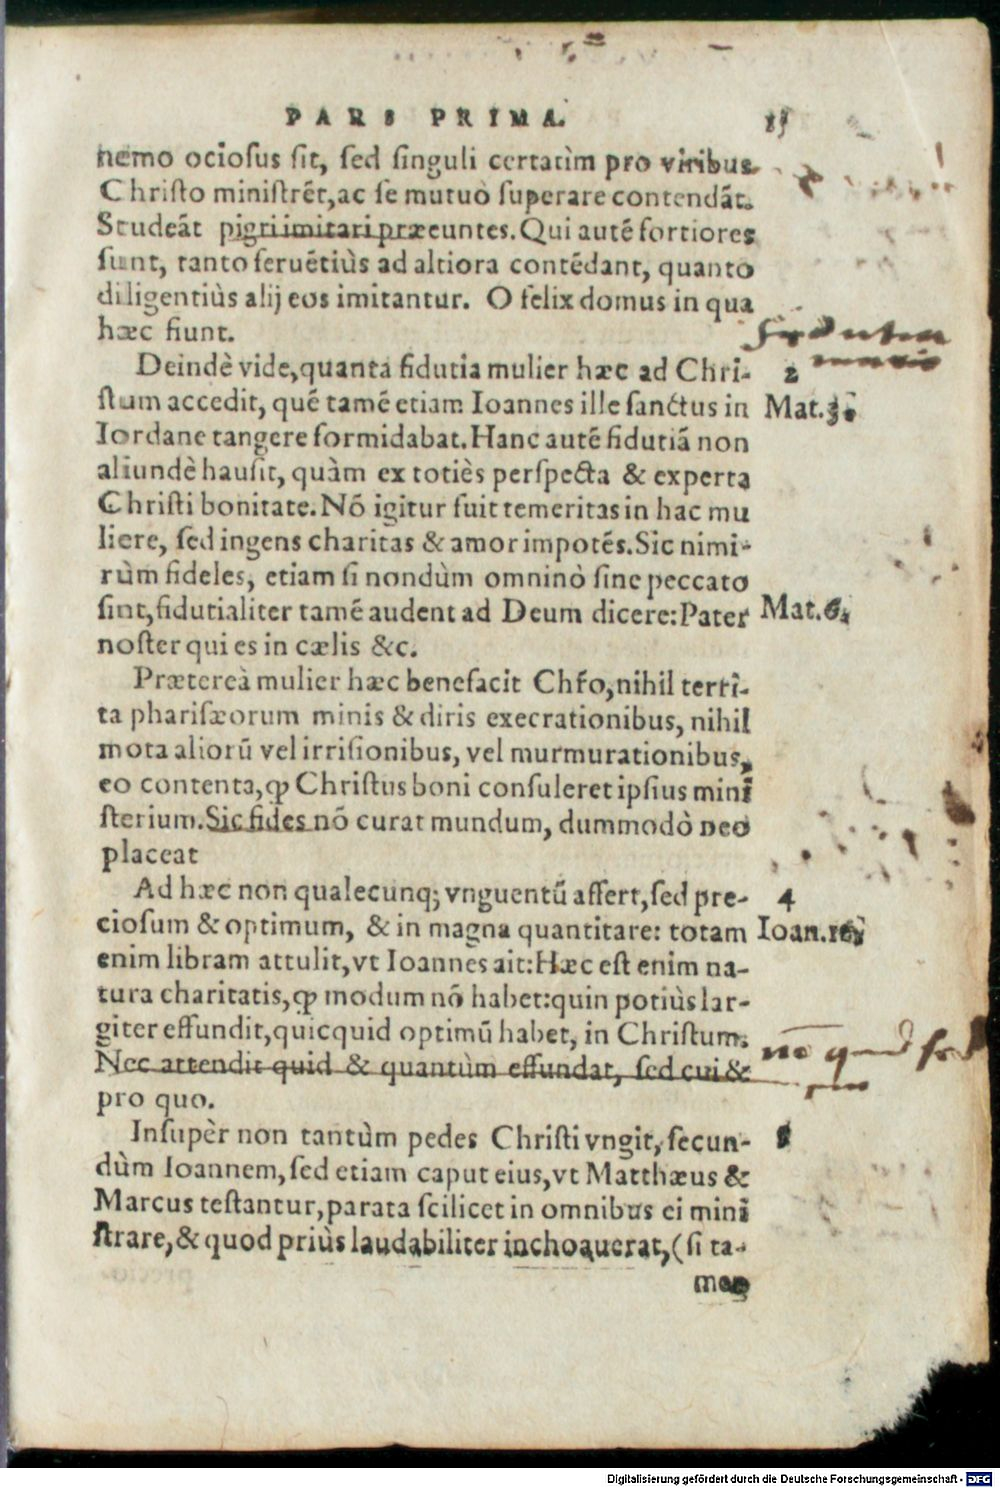 PARS PRIMA. 15
nemo ociosus sit, sed singuli certatìm pro viribus
Christo ministrẽt, ac se mutuò superare contendãt.
Studeãt pigri imitari præeuntes. Qui autẽ fortiores
sunt, tanto seruẽtiùs ad altiora contẽdant, quanto
diligentiùs alij eos imitantur. O felix domus in qua
hæc fiunt.
Deindè vide, quanta fidutia mulier hæc ad Chri- 2
stum accedit, quẽ tamẽ etiam Ioannes ille sanctus in Mat.3.
Iordane tangere formidabat. Hanc autẽ fidutiã non
aliundè hausit, quàm ex totiès perspecta & experta
Christi bonitate. Nõ igitur fuit temeritas in hac mu
liere, sed ingens charitas & amor impotẽs. Sic nimi-
rùm fideles, etiam si nondùm omninò sine peccato
sint, fidutialiter tamẽ audent ad Deum dicere: Pater Mat.6.
noster qui es in cælis &c.
Prætereà mulier hæc benefacit Chr̃o, nihil terri-
ta pharisæorum minis & diris execrationibus, nihil
mota aliorũ vel irrisionibus, vel murmurationibus,
eo contenta, ꝙ Christus boni consuleret ipsius mini
sterium. Sic fides nõ curat mundum, dummodò Deo
placeat
Ad hæc non qualecunq; vnguentũ affert, sed pre- 4
ciosum & optimum, & in magna quantitate: totam Ioan.
enim libram attulit, vt Ioannes ait: Hæc est enim na-
tura charitatis, ꝙ modum nõ habet: quin potiùs lar-
giter effundit, quicquid optimũ habet, in Christum.
Nec attendit quid & quantùm effundat, sed cui &
pro quo.
Insupèr non tantùm pedes Christi vngit, secun- 5
dùm Ioannem, sed etiam caput eius, vt Matthæus &
Marcus testantur, parata scilicet in omnibus ei mini
strare, & quod priùs laudabiliter inchoauerat, (si ta-
men
Digitalisierung gefördert durch die Deutsche Forschungsgemeinschaft - DFG